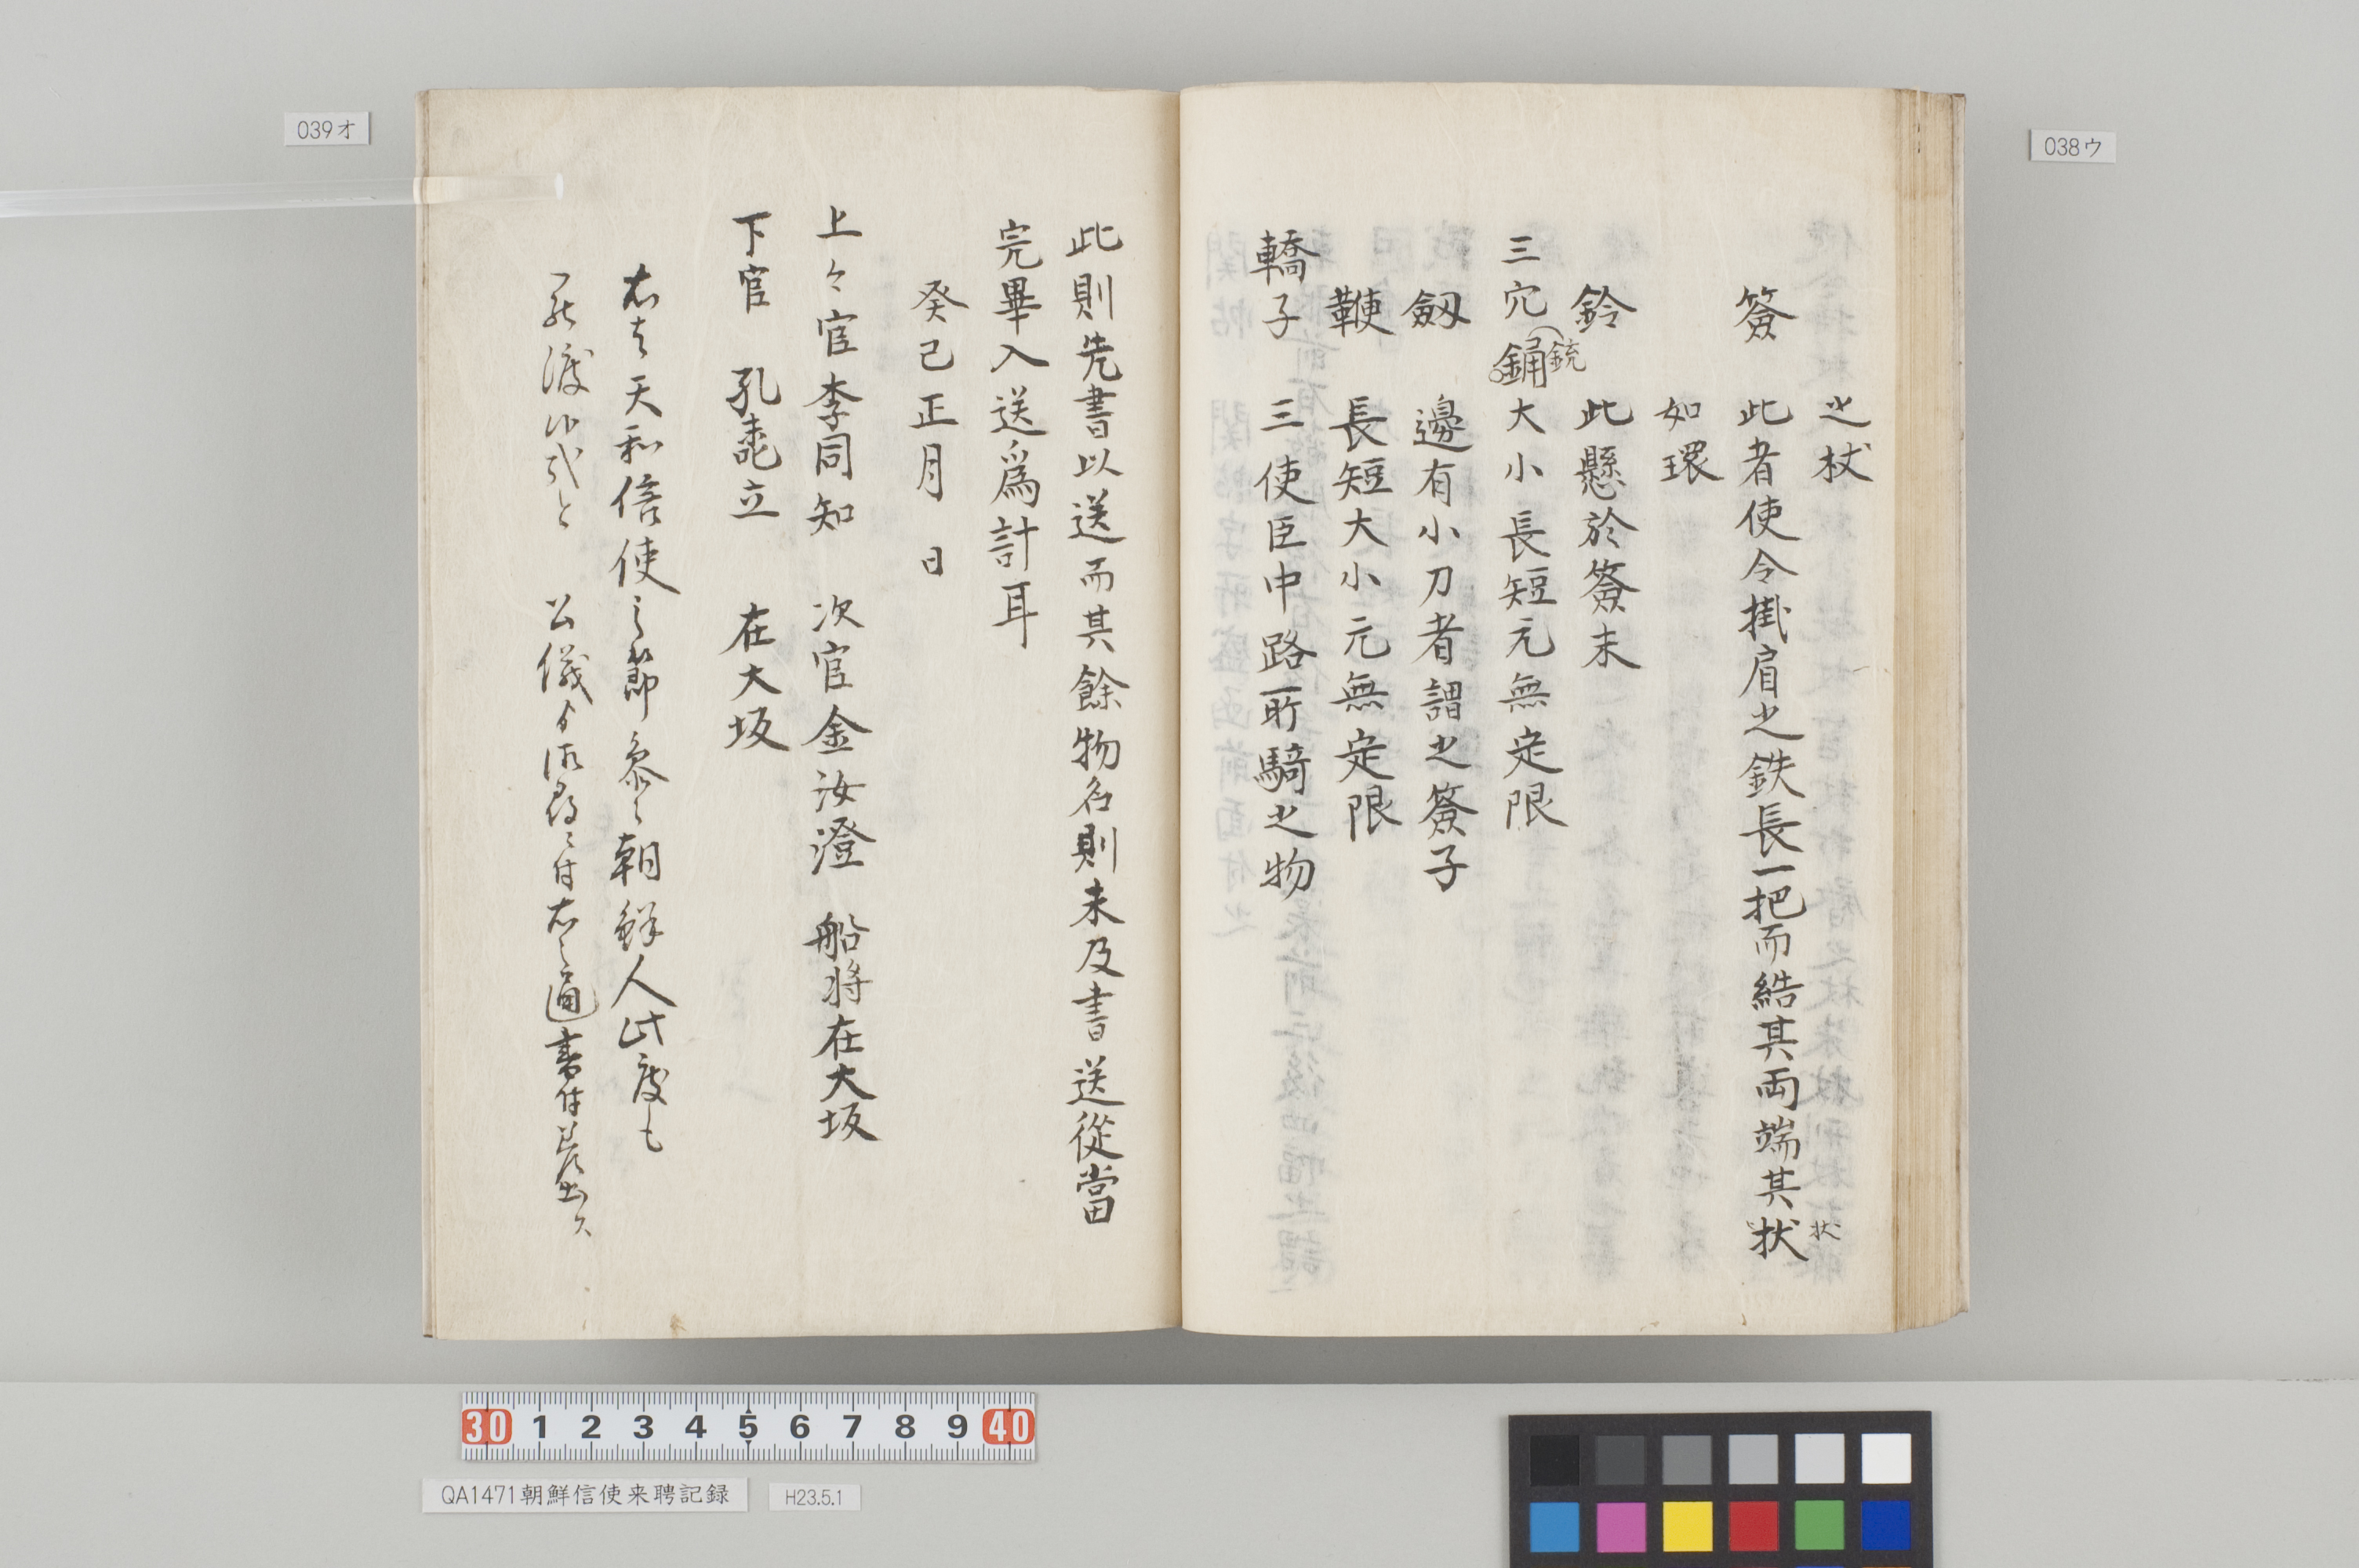 038ウ
之杖
簽 此者使令掛肩之鉄長一把而結其両端其状
状
如環
鈴 此懸於簽末
三穴銿 大小長短元無定限
銃
劔 邊有小刀者謂之簽子
鞭 長短大小元無定限
轎子 三使臣中路所騎之物
039オ
此則先書以送而其餘物名則未及書送從當
完畢入送爲計耳
癸巳正月 日
上々官李同知 次官金汝澄 船将在大坂
下官 孔 立 在大坂
右者天和信使之節参候朝鮮人此度も
罷渡候 公儀 付右之通書付差出ス
30 1 2 3 4 5 6 7 8 9 40
QA1471朝鮮信使来聘記録
H23.5.1